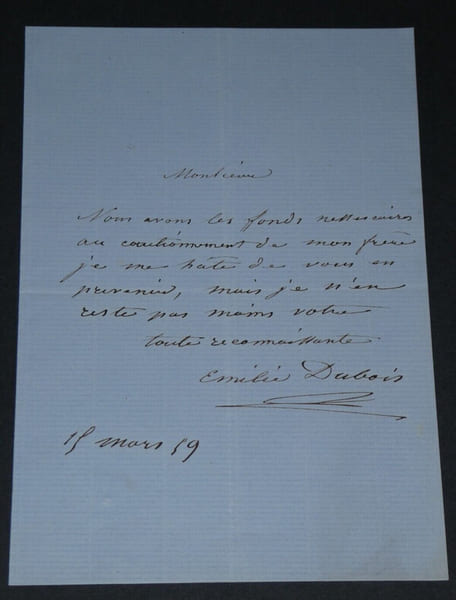 Monsieur
Nous avons les fonds nessessaires
au cautionnement de mon frère
je me hâte de vous en
prevenir, mais je n'en
reste pas moins votre
toute reconnaissante
Emilie Dubois
15 mars 59